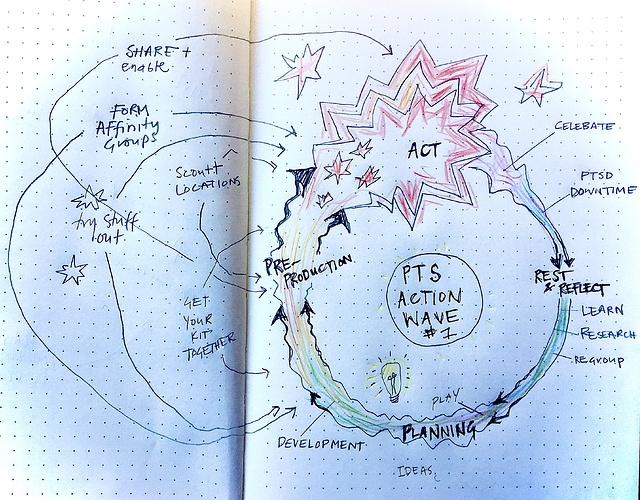 SHARE +
enable
FORM
Affinity
Groups
SCOUT
LOCATIONS
try stuff
out
GET
YOUR
KIT
TOGETHER
ACT
CELEBATE
PTSD
DOWNTIME
PRE-
PRODUCTION
PTS
ACTION
WAVE
#1
REST
& REFLECT
LEARN
RESEARCH
REGROUP
PLAY
PLANNING
DEVELOPMENT
IDEAS